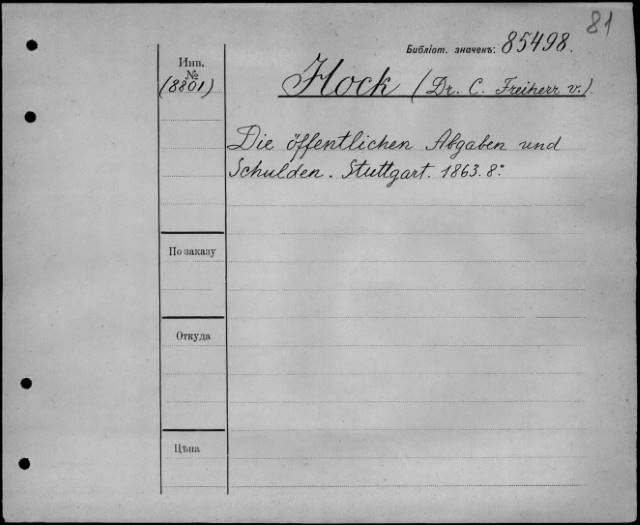 81
Библіот. значенъ: 85498.
Инв.
№
(8801)
Hock (Dr. C. Freiherr v.).
Die öffentlichen Abgaben und
Schulden. Stuttgart. 1863. 8°
По заказу
Откуда
Цѣна